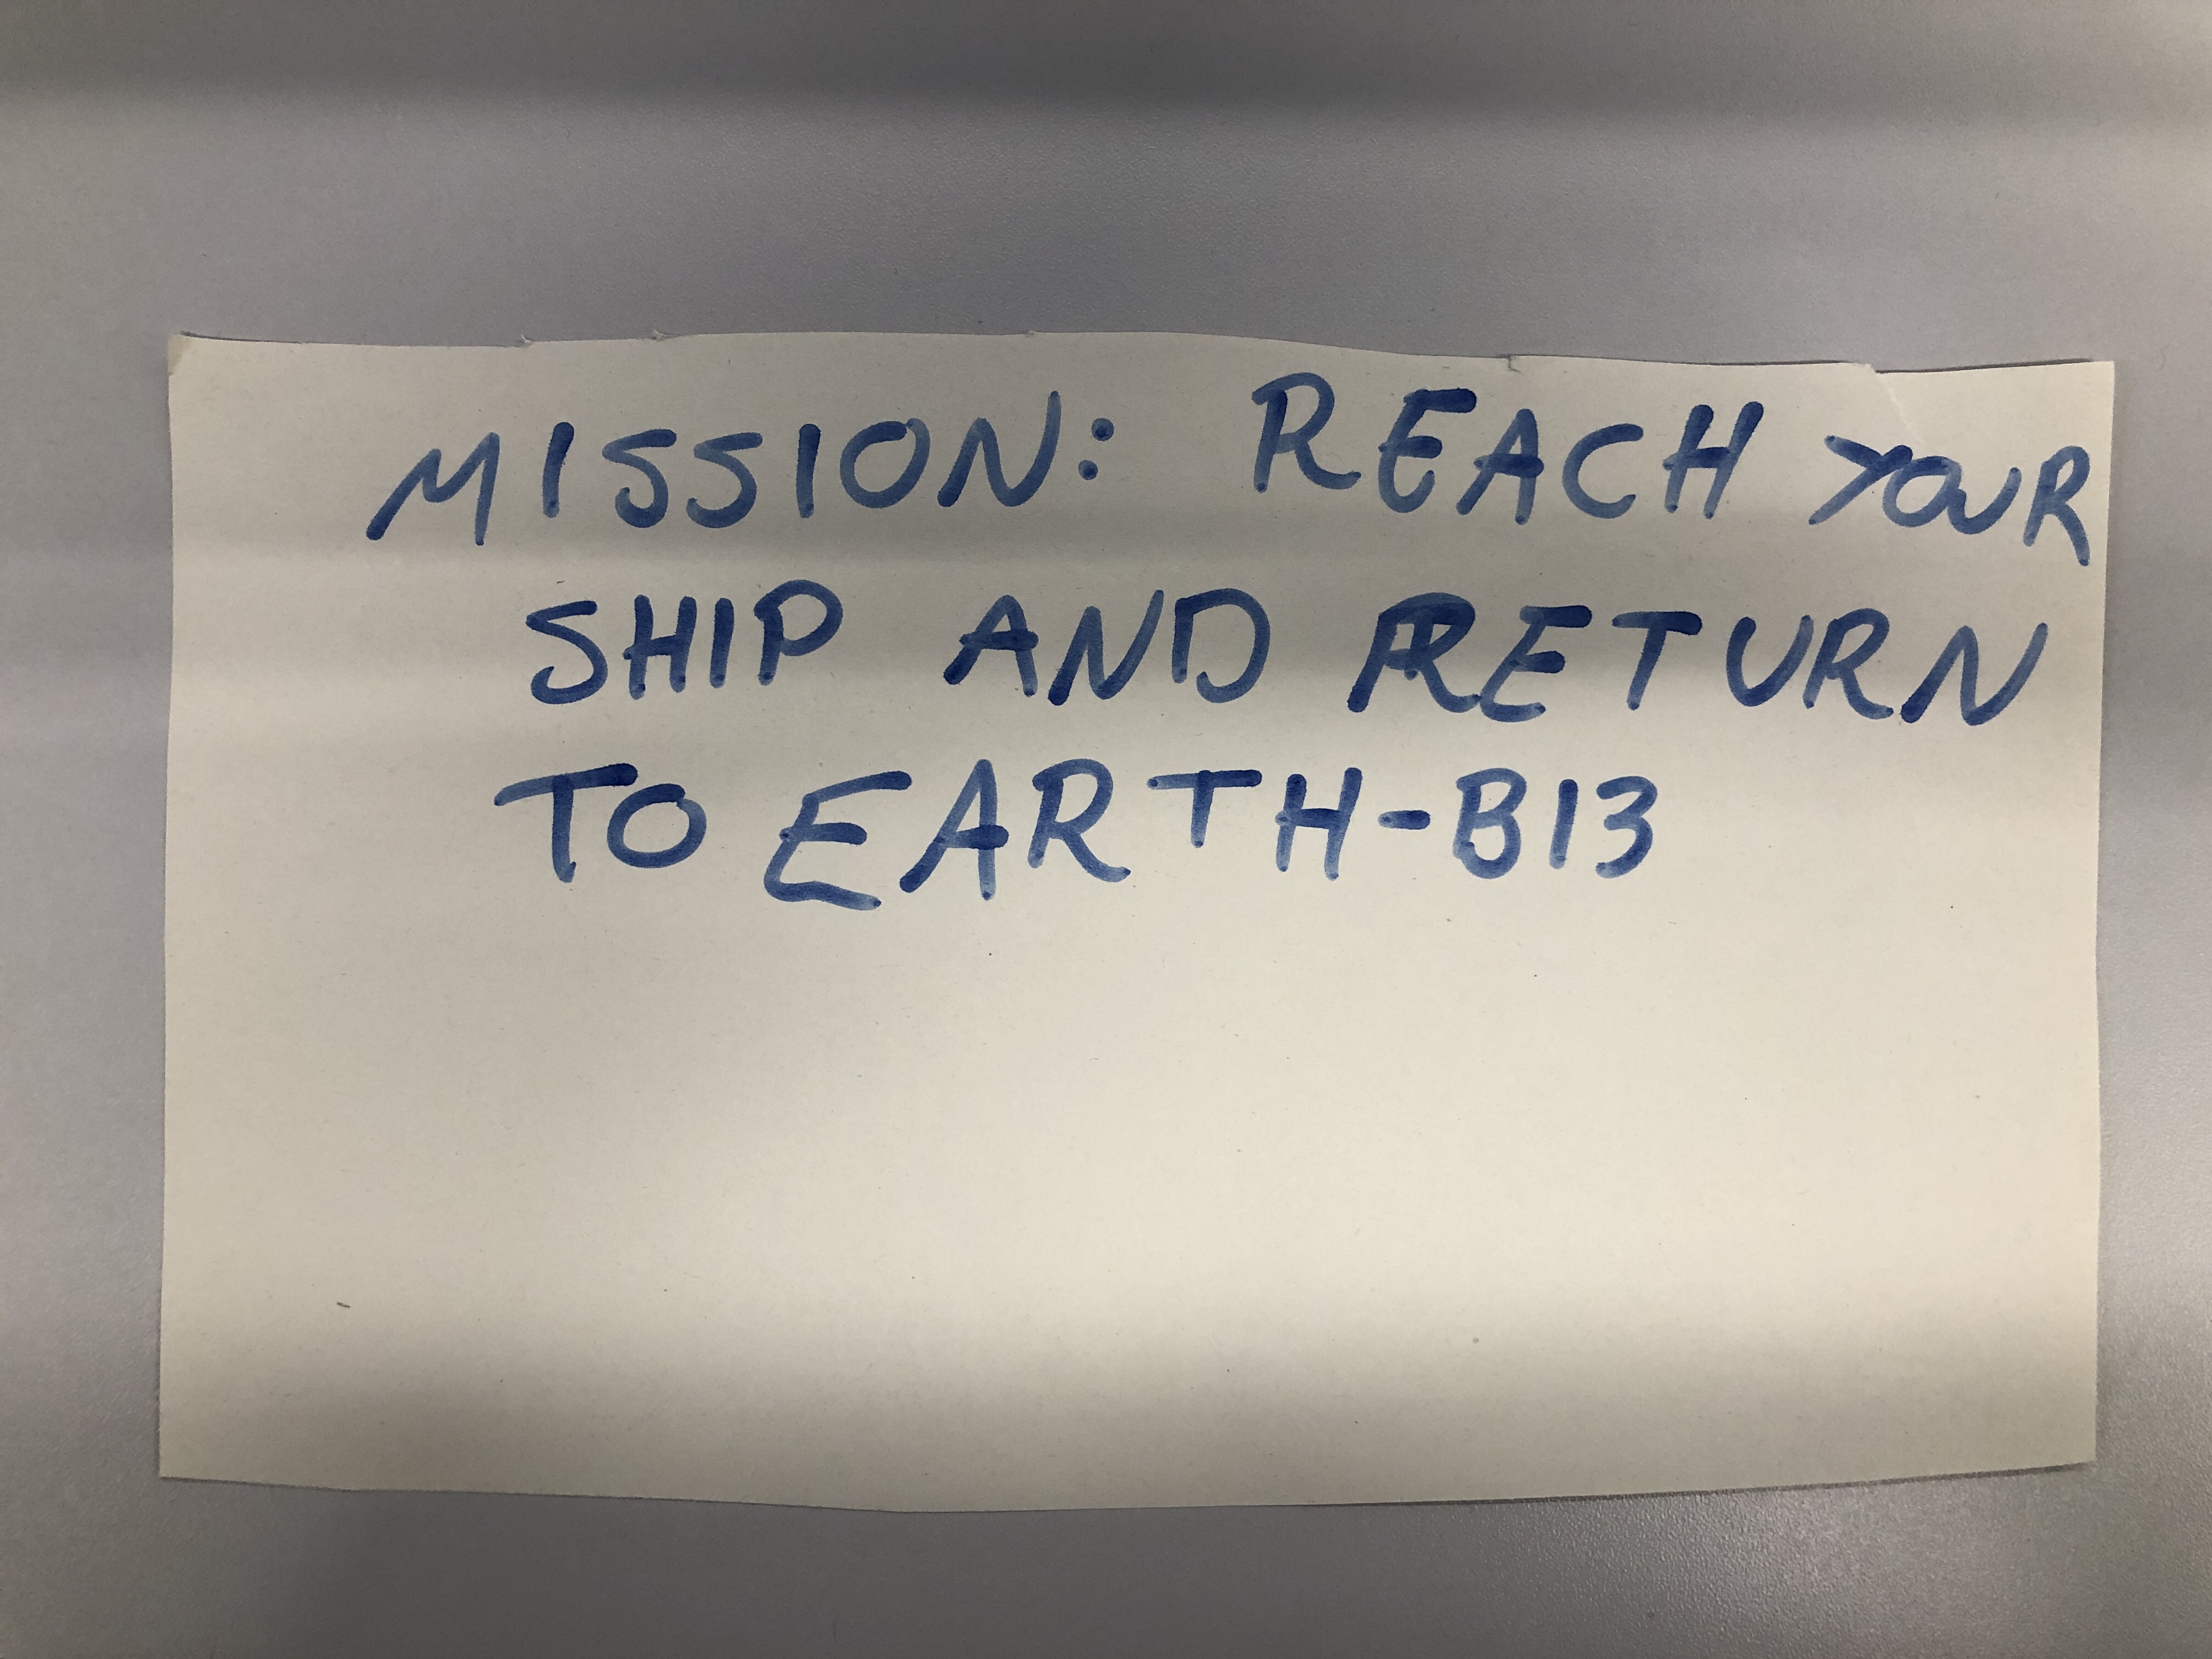 MISSION: REACH YOUR
SHIP AND RETURN
TO EARTH-B13